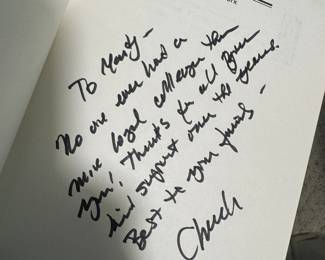 To Mandy —
No one ever had a
more loyal colleague than
you! Thanks for all your
kind support over the years.
Best to your family —
Chuck